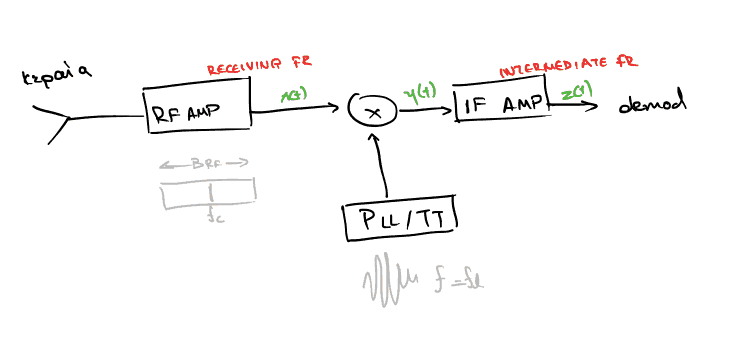 κεραία
RECEIVING FR
RF AMP
x(t)
x
y(t)
INTERMEDIATE FR
IF AMP
z(t)
demod
BRF
fc
PLL/TT
f=fl